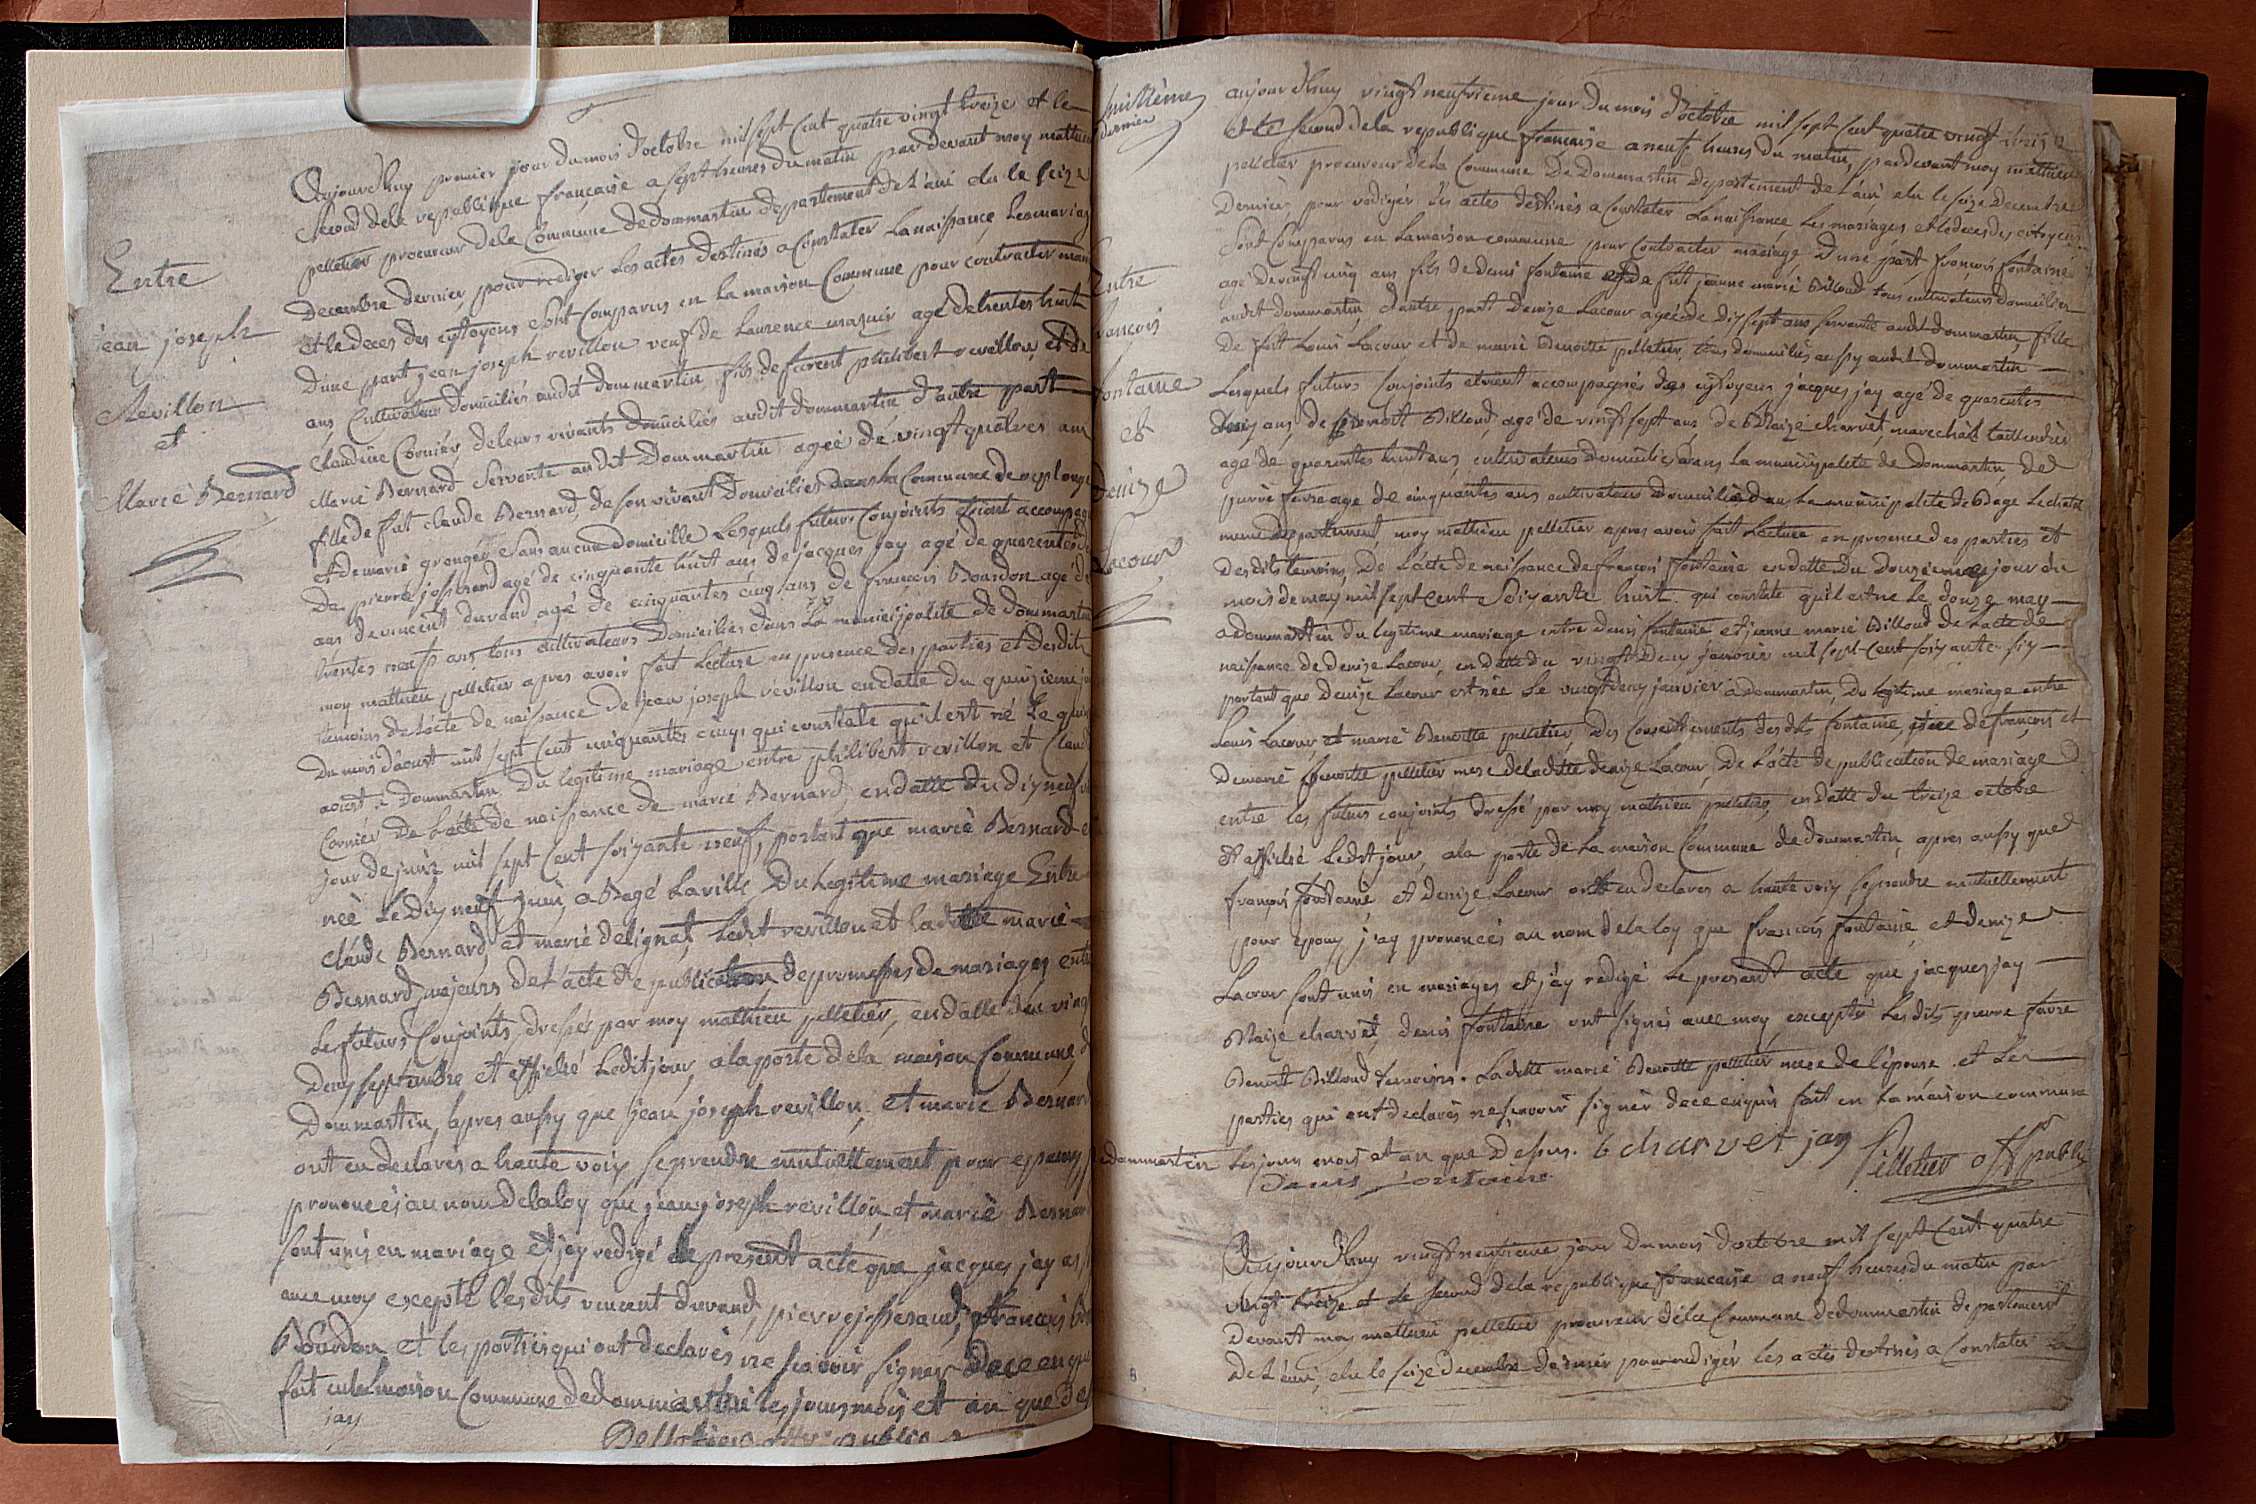 Entre
jean joseph
Revillon
et
Marie Bernard
Aujourdhuy premier jour du mois doctobre mil sept cent quatre vingt treize et le
second dela republique française a sept heures du matin par devant moy mathieu
pelletier procureur dela Commune de dommartin departement de L'ain elu le seize
Decembre dernier pour rediger les actes destinés a Constater La naissance Les mariag
et le deces des citoyens sont Comparus en La maison Commune pour contracter mari
D'une part jean joseph revillon veuf de Laurence agé de trentes huit
ans Cultivateur domiciliés audit dommartin fils de furent philibert revillon et de
Claudine Cornier de leurs vivants domiciliés audit dommartin d'autre part
Marie Bernard Servante audit Dommartin ageé de vingt quatres ans
fille de fut claude Bernard de son vivant domiciliés dans la Commune de replonge
et de marie sans aucun domicille Lesquels futurs Conjoints etoint accompag
De pierre josserand agé de cinquante huit ans de jacques jay agé de quarentes
ans de vincent durand agé de cinquantes cinq ans de françois Bourdon agé de
trentes neuf ans tous cultivateurs Domiciliés dans La municipalité de dommartin
moy mathieu pelletier apres avoir fait Lecture en presence des parties et desdit
temoins de L'acte de naissance de jean joseph revillon en datte du quinzieme jo
Du mois daoust mil sept Cent cinquantes cinq, qui constate qu'il est né Le quin
aoust a Dommartin Du legitime mariage entre philibert revillon et Claud
Cornier De L'acte de naissance de marie Bernard en datte du dixneuf
jour de juin mil sept Cent soixante neuf, portant que marie Bernard e
neé Le dix neuf juin a Bagé Laville Du Legitime mariage Entre
claude Bernard et marie delignat Ledit revillon et la ditte marie
Bernard majeurs de L'acte de publication de promesses de mariages entre
Les futurs Conjoints dressés par moy mathieu pelletier, en datte du vingt
deux septembre et affiché Ledit jour a la porte de la maison Commune d
Dommartin, apres aussy que jean joseph revillon, et marie Bernard
ont eu declarés a haute voix se prendre mutuellement pour epoux j
prononcés au nom de la loy que jean joseph revillon et marie Bernard
sont unis en mariage et j'ay redigé le present acte que jacques jay a
avec moy excepté lesdits vincent durand, pierre josserand, françois Bo
Bourdon et les parties qui ont declarés ne scavoir signer dece enqui
fait en la maison Commune de dommartin les jours mois et an que des
jay
Pelletier off public
huitième
dernier
Entre
françois
fontaine
et
Denize
Lacour
aujourdhuy vingt neufvieme jour du mois doctobre mil sept cent quatre vingt treize
et le second dela republique française a neuf heures du matin, pardevant moy mathieu
pelletier procureur dela Commune De Dommartin departement de L'ain elu le seize Decembre
Dernier pour rediger les actes destinés a Constater La naissance Les mariages et le deces des citoyens
sont Comparus en La maison commune pour Contracter mariage D'une part françois fontaine
agé de vingt cinq ans fils de denis fontaine et de fut jeanne marie Billoud tous cultivateurs domicilies
audit dommartin, d'autre part Denize Lacour ageé de dix sept ans servante audit dommartin fille
De fut Louis Lacour et de marie Benoitte pelletier, tous domiciliés aussy audit dommartin
Lesquels futurs Conjoints etoient accompagnés des citoyens jacques jay agé de quarentes
trois ans, de Benoit Billoud, agé de vingt sept ans, de Blaize charvet, marechal taillandier
agé de quarentes huit ans, cultivateurs domicilies dans La municipalité de Dommartin, de
pierre favre age de cinquantes ans cultivateur domicilié dans La municipalité de Bage Lechatel
meme departement, moy mathieu pelletier apres avoir fait Lecture en presence des parties et
Desdits temoins, De L'acte de naissance de françois fontaine en datte du Douzieme jour du
mois de may mil sept Cent soixante huit qui constate qu'il est né Le douze may
a dommartin du legitime mariage entre denis fontaine et jeanne marie Billoud De L'acte de
naissance de denize Lacour, en datte du vingt deux janvier mil sept Cent soixante six
portant que Denize Lacour est née Le vingt deux janvier a dommartin, Du legitime mariage entre
Louis Lacour et marie Benoitte pelletier, Des Consentements desdits fontaine, pere de françois, et
De marie Benoitte pelletier mere de la ditte denize Lacour, De L'acte de publication de mariage
entre les futurs conjoints dressé par moy mathieu pelletier, en datte du treize octobre
et affiché Ledit jour, a la porte de La maison Commune de dommartin, apres aussy que
françois fontaine et denize Lacour ont eu declarés a haute voix se prendre mutuellement
pour epoux j'ay prononcés au nom de la loy que françois fontaine et denize
Lacour sont unis en mariages et j'ay redigé Le present acte que jacques jay
Blaize charvet, denis fontaine ont signés avec moy excepté Lesdits pierre favre
Benoit Billoud temoins. La ditte marie Benoitte pelletier mere de l'epouse et Les
parties qui ont declarés ne scavoir signer de ce enquis fait en La maison commune
dedommartin Les jour mois et an que Dessus. b charvet jay Pelletier off public
Denis fontaine
Aujourdhuy vingt neufvieme jour du mois doctobre mil sept Cent quatre
vingt treize et Le second dela republique francaise a neuf heures du matin par
devant moy mathieu pelletier procureur dela Commune de dommartin departement
de L'ain, elu le seize decembre dernier pour rediger les actes destinés a Constater La